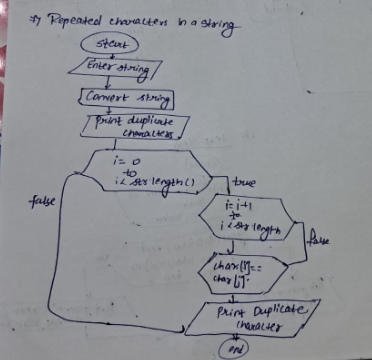 Repeated characters in a string
start
Enter string
Convert string
Print duplicate
characters
i = 0
to
i < str length()
true
false
i = i+1
to
i < str length
false
char[i]==
char[j].
Print Duplicate
character
end